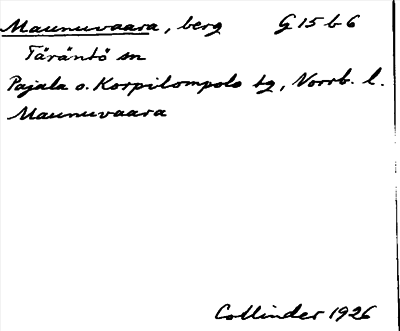 Maunuvaara, berg G 15 b 6
Täräntö sn
Pajala o. Korpilompolo tg, Norrb. l.
Maunuvaara
Collinder 1926